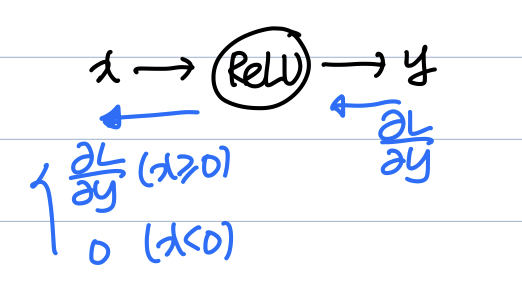 x → ReLU → y
← ← ∂L/∂y
{ ∂L/∂y (x≥0)
0 (x<0)